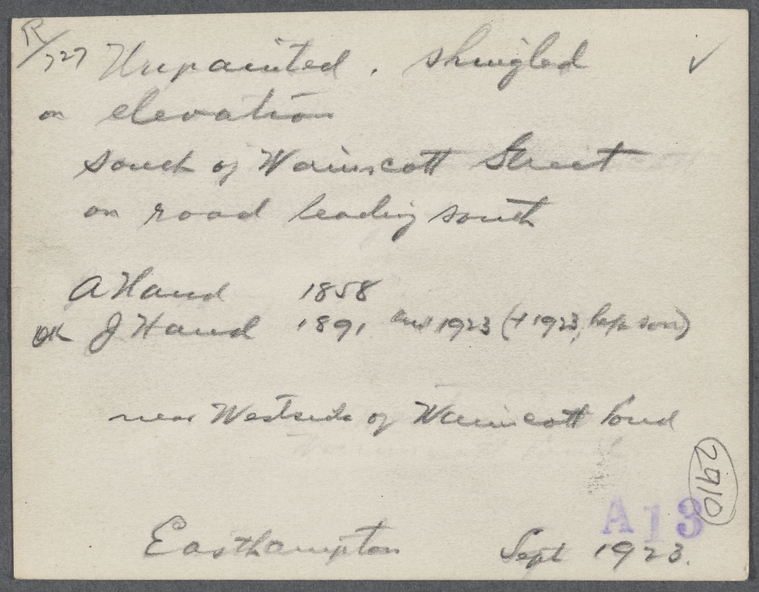 R/727 Unpainted, shingled ✓
on elevation
south of Wainscott Street
on road leading south
A Hand 1858
OK J Hand 1891 and 1923 († 1923, left son)
near Westside of Wainscott Pond
2910
A13
Easthampton Sept 1923.